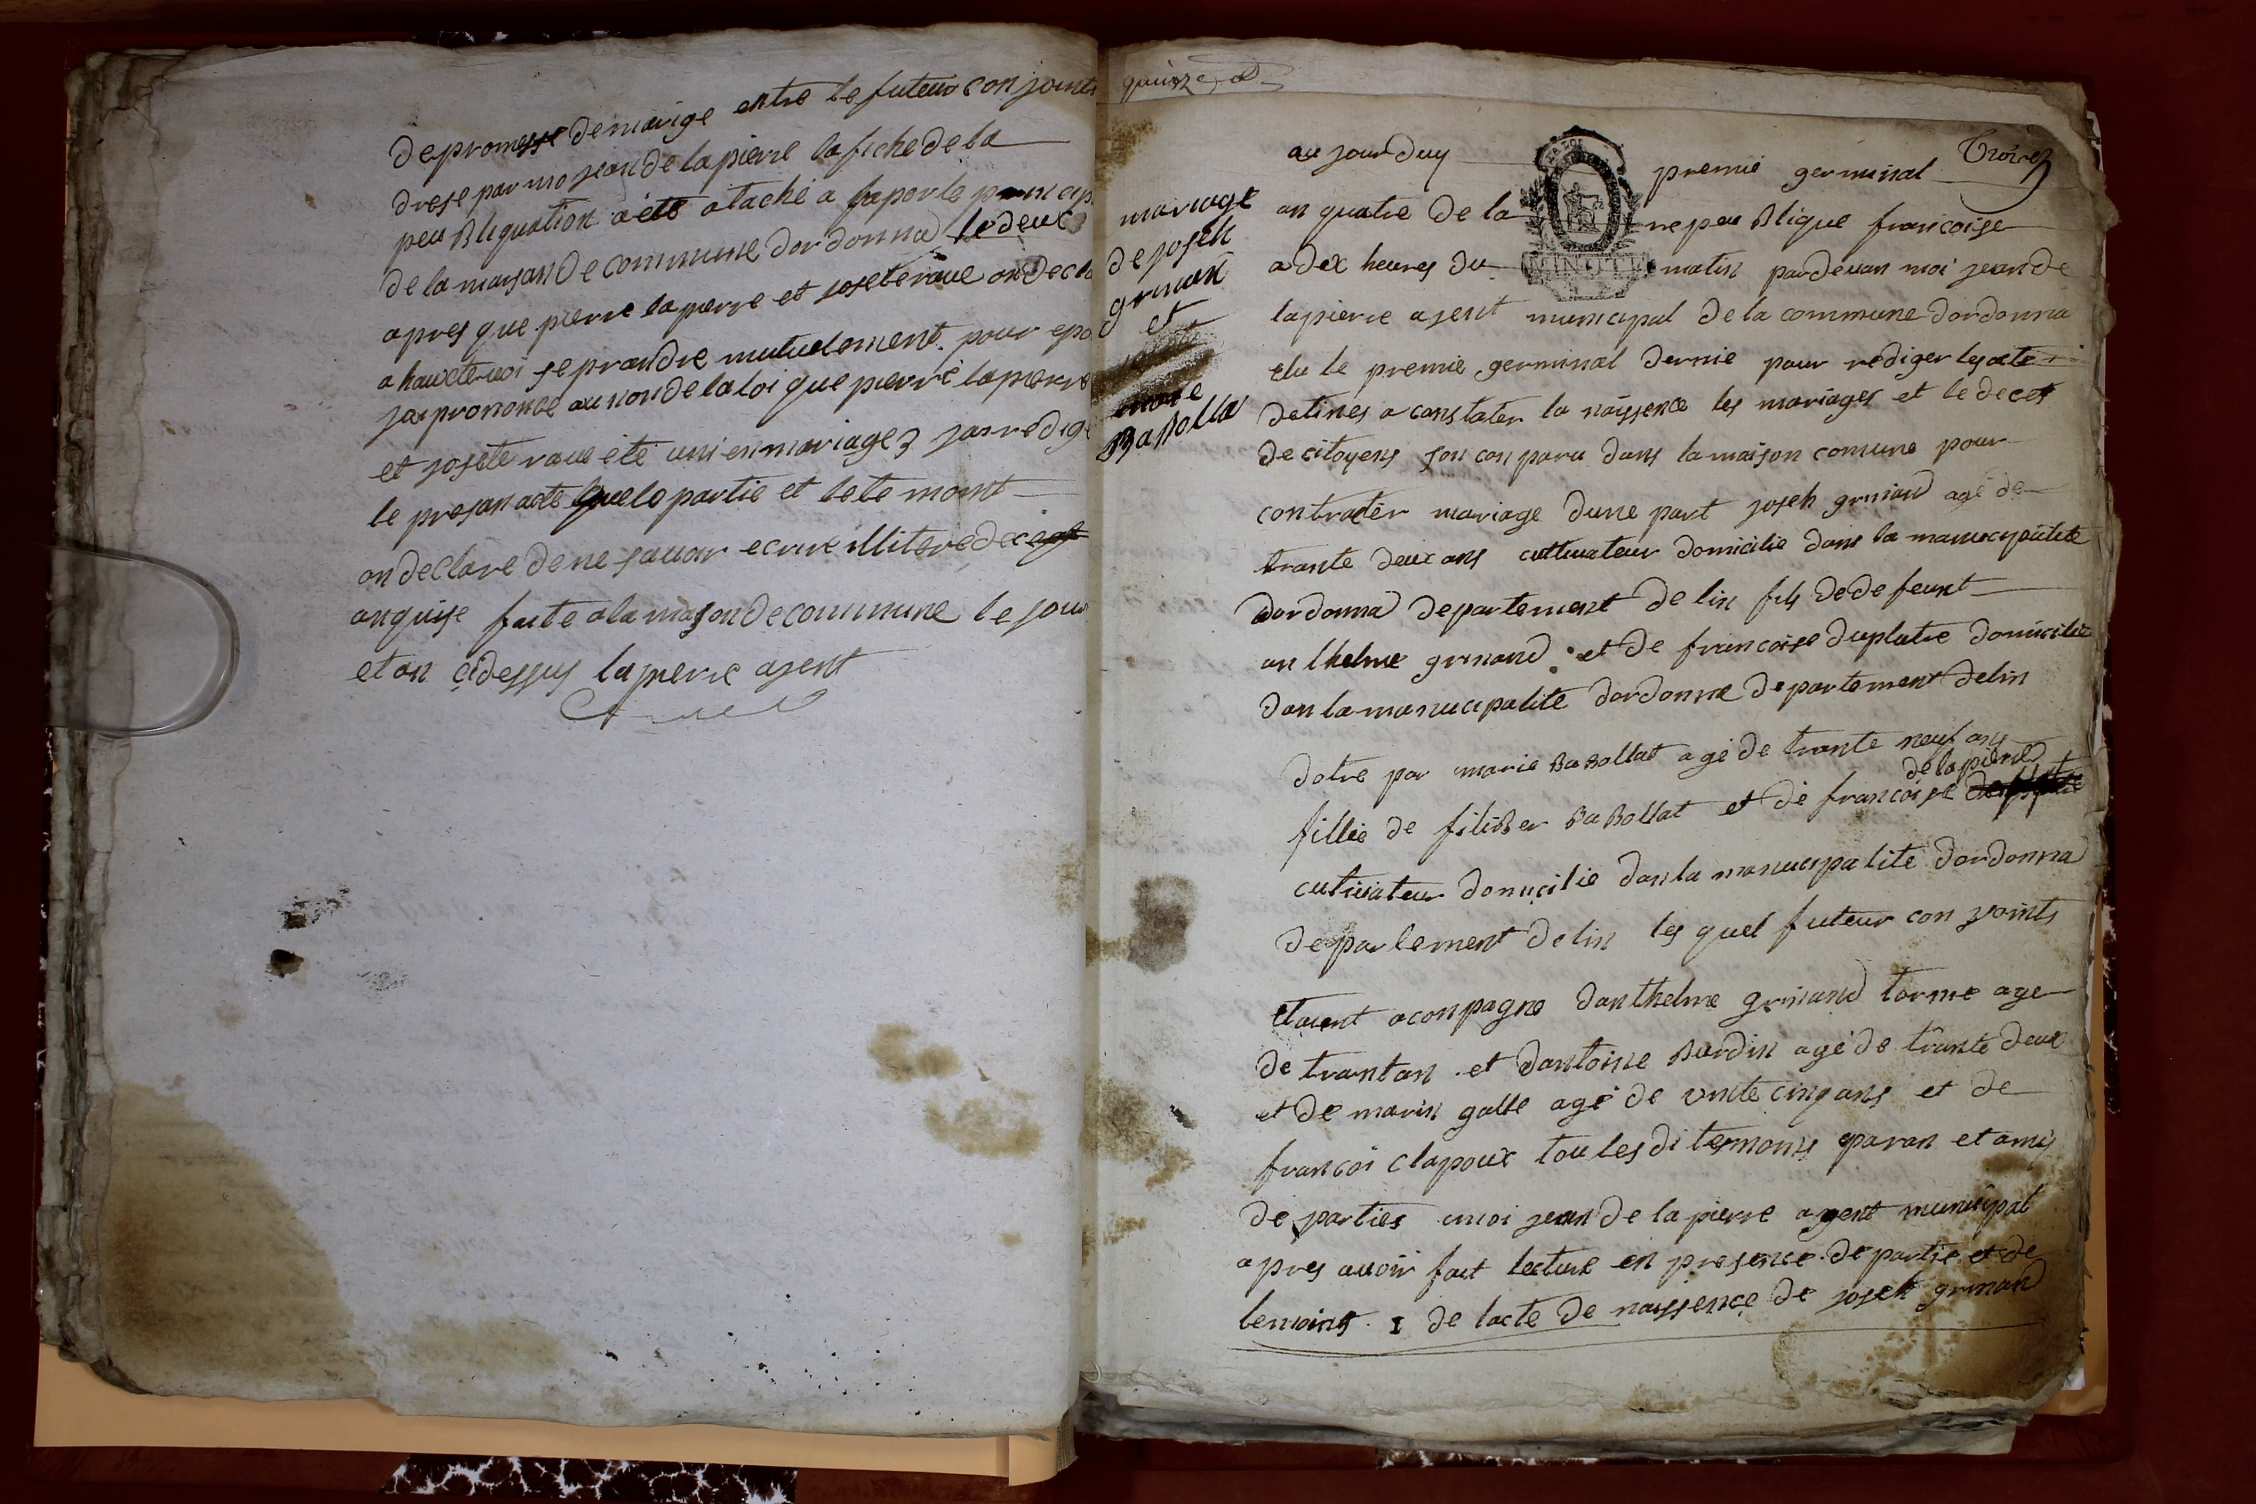 de promesse de marige entre le futeur conjoints
drese par mo jean de lapierre lafiche de la
peu Bliquation a été ataché a laporte princip
de la maison de commune dordonna le deux
apres que pierre lapierre et josete raue on decla
a hauxte uoi se prandre mutuelement pour epo
jai prononce au non de la loi que pierre lapierre
et josete raue été uni en mariage jai redige
le presan acte que lo partie et lete moint
on declare de ne sauoir ecrire illitere de ce
anquise faite a la mason de commune le jour
et an cidessus lapierre agent
quinze
Troize
mariage
de joseh
grinand
et
marie
Babolla
au jourduy premie germinal
an quatre de la repeu Blique francoise
a dex heures du matin par devan moi jean de
MINUTE
lapierre agent municipal de la commune dordonna
elu le premie germinal dernie pour rediger les acte
detines a constater la naissence les mariages et le deces
de citoyens son conparu dans la maison comune pour
contracter mariage dune part joseh grinand agé de
trante deux ans cultivateur domicilie dans la manucipalité
dordonna departement de lin fils de defeunt
an thelme grinand et de francoise duplatre domicilie
dan la manucipalite dordonna departement de lin
dotre par marie Babollat agé de trante neuf ans
de lapierre
fillie de filiber Babollat et de francoise
cultivateur domicilie dan la manucipalite dordonna
departement de lin les quel futeur conjoints
etoient aconpagne danthelme grinand torme age
de trantan et dantoine Burdin agé de trante deux
et de marin galle agé de vinte cinq ans et de
francoi clapoux tou les di temoins paran et amis
de parties moi jean de la pierre agent municipal
apres auoir fait lecture en presence de partie et de
temoins 1 de lacte de naissence de joseh grinand